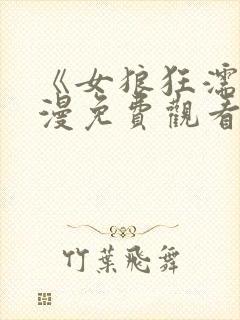 《女狼狂濡
漫免費觀看
竹葉飛舞